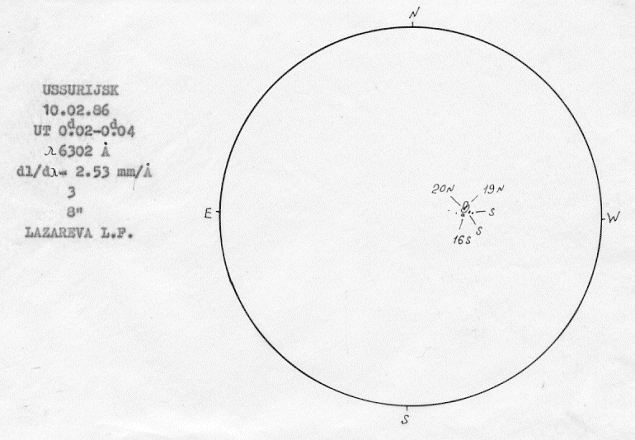 N
USSURIJSK
10.02.86
UT 0ᵈ.02-0ᵈ.04
λ6302 Å
dl/dλ= 2.53 mm/Å
3
8"
LAZAREVA L.F.
20N 19N
E S W
S
16S
S